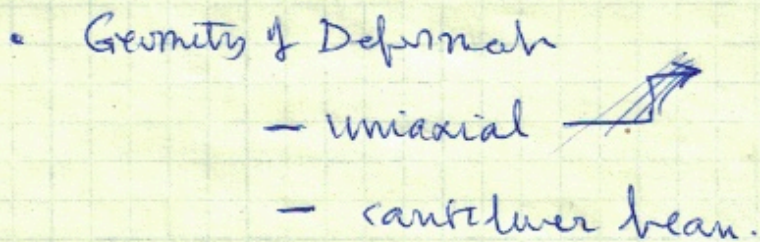 • Geometry of Deformatn
- uniaxial
- cantilever beam.